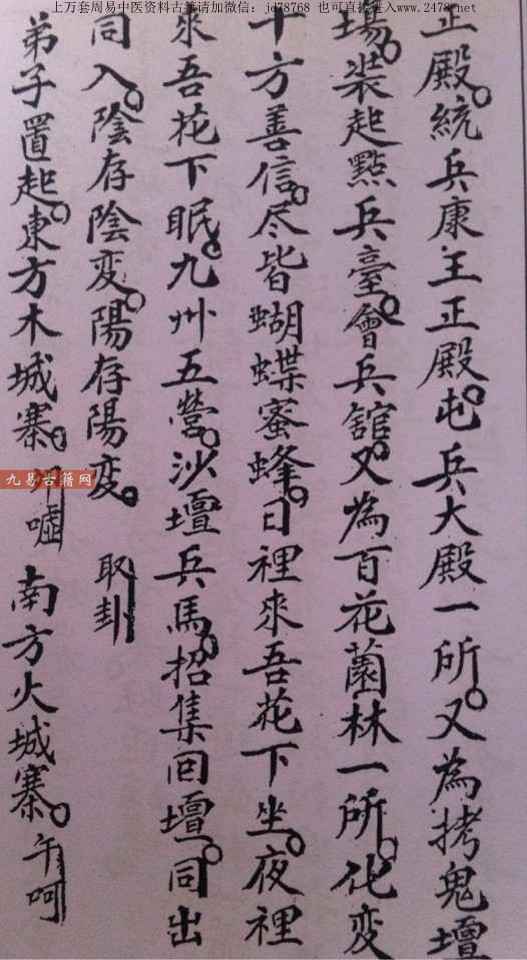 上万套周易中医资料古籍请加微信：jd78768 也可直接进入www.2478.net
正殿。統兵康王正殿。屯兵大殿一所。又為拷鬼壇
場。裝起點兵臺。會兵舘。又為百花薗林一所。化変
十方善信。尽皆蝴蝶蜜蜂。日裡來吾花下坐。夜裡
來吾花下眠。九州五營。沙壇兵馬。招集囘壇。同出
同入。陰存陰変。陽存陽変。取卦
弟子置起。東方木城寨。噓 南方火城寨。午呵
九易古籍网